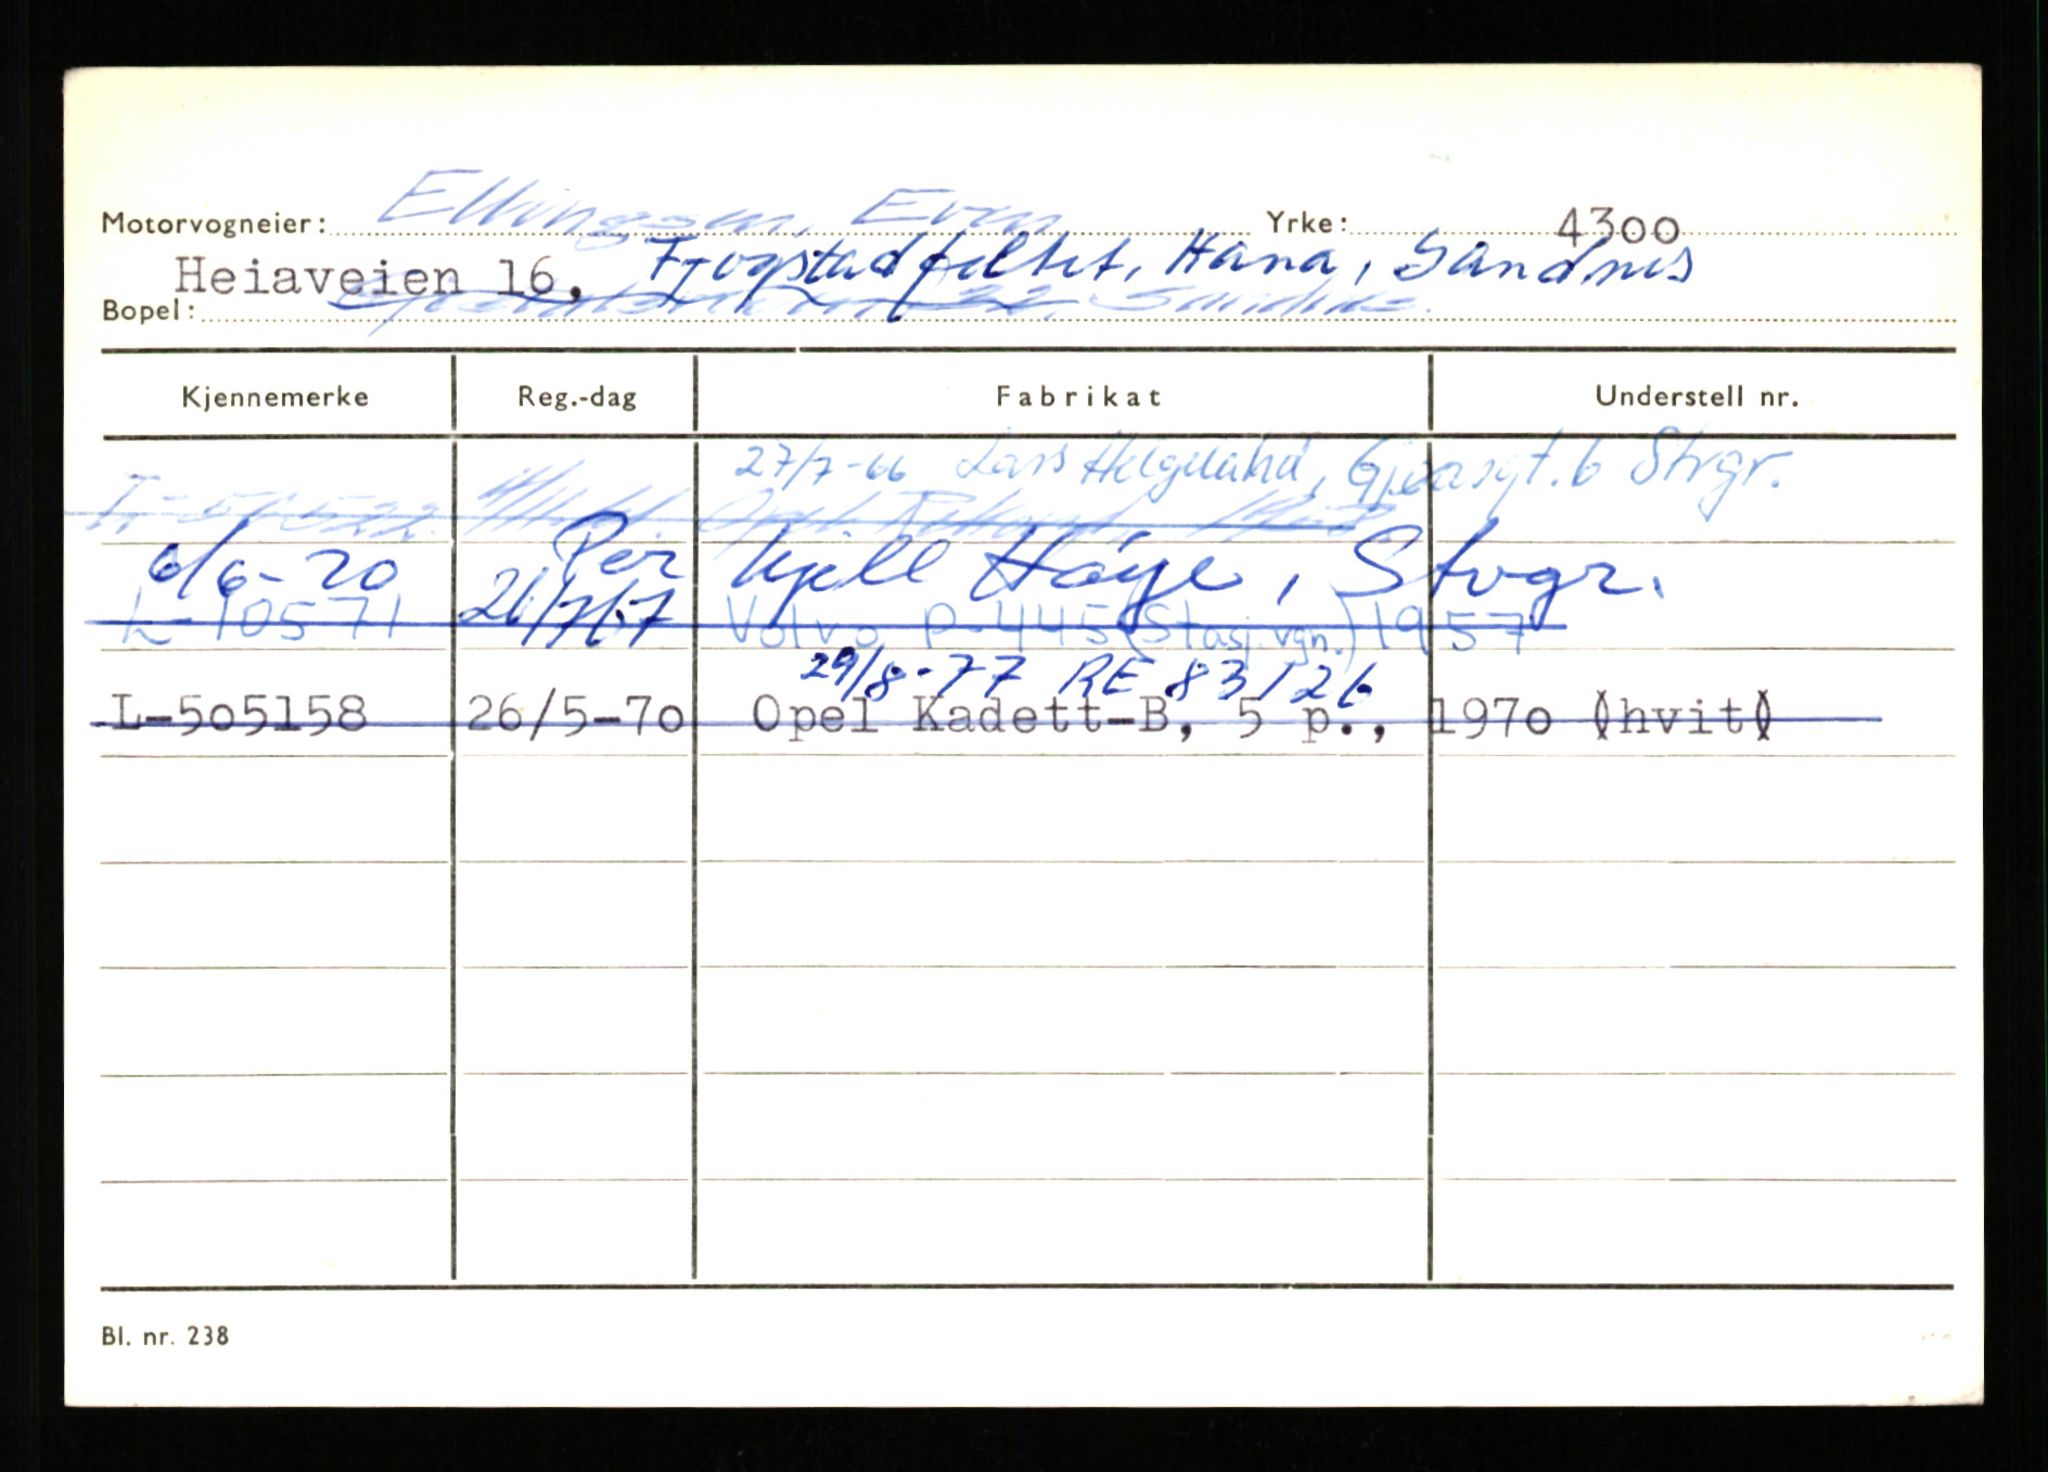 Motorvogneier: Ellingsen, Even Yrke: 4300
Heiaveien 16, Frogstadfeltet, Hana, Sandnes
Bopel:
Kjennemerke Reg.-dag Fabrikat Understell nr.
27/7-66 Lars Helgeland, Gjoasgt. 6 Stvgr.
Opel Rekord
6/6-70 Per Kjell Høye, Stvgr.
L-10571 26/7/67 Volvo P-445 (Stasj.vgn.) 1957
29/8-77 RE 83126
L-505158 26/5-70 Opel Kadett-B, 5 p., 1970 (hvit)
Bl. nr. 238